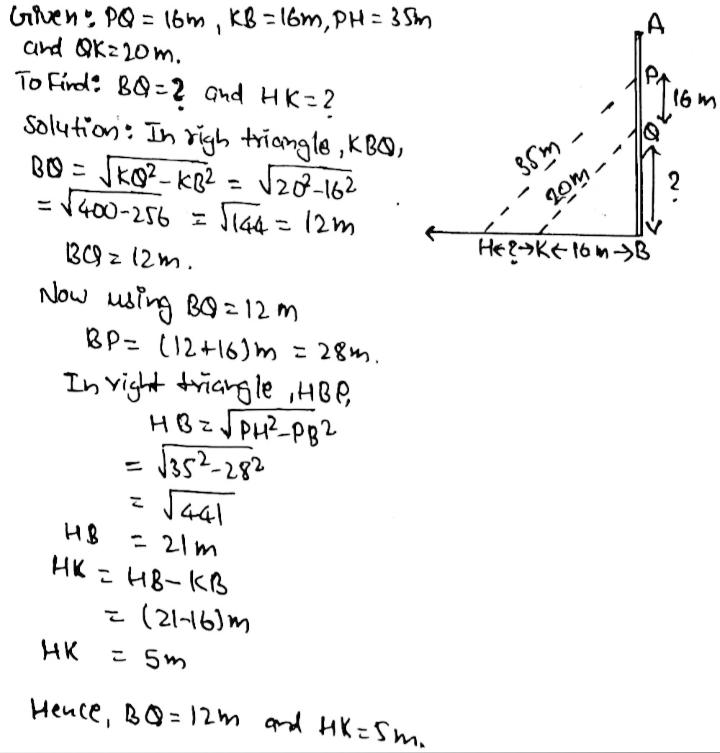 Given: PQ = 16m, KB = 16m, PH = 35m
and QK = 20m.
To Find: BQ = ? and HK = ?
Solution: In righ triangle, KBQ,
BQ = √KQ²-KB² = √20²-16²
= √400-256 = √144 = 12m
BQ = 12m.
Now using BQ = 12 m
BP = (12+16)m = 28m.
In right triangle, HBP,
HB = √PH²-PB²
= √35²-28²
= √441
HB = 21m
HK = HB-KB
= (21-16)m
HK = 5m
Hence, BQ = 12m and HK = 5m.
A
P
16 m
Q
35m
20m
?
H←?→K←16m→B